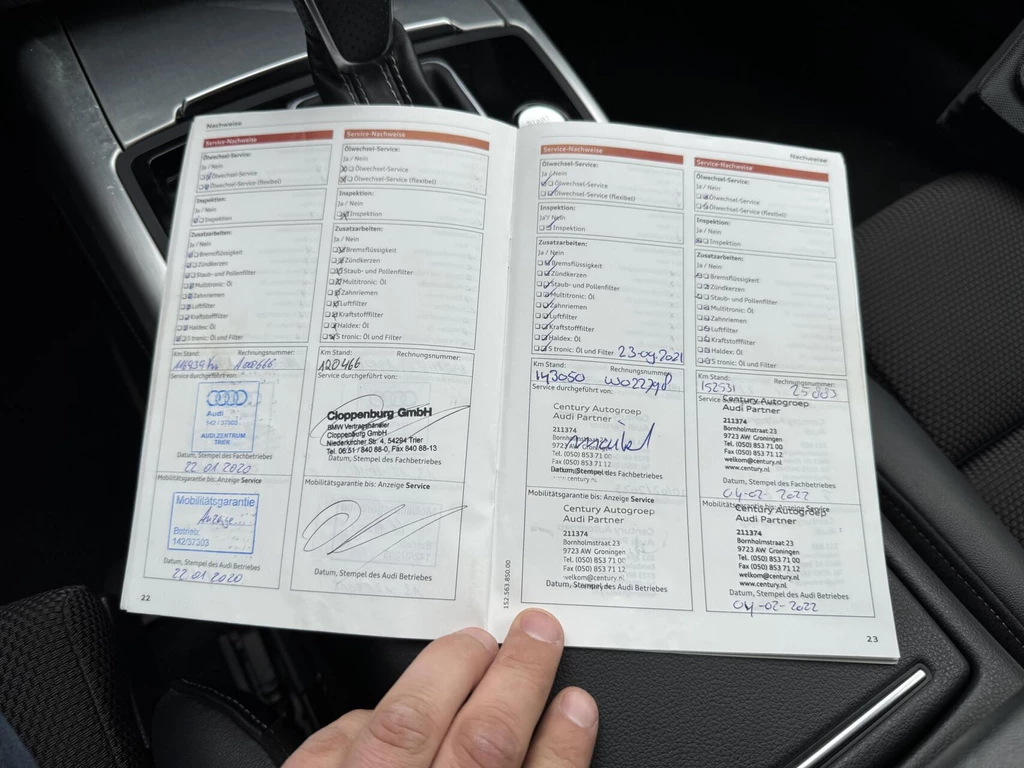 Nachweise
Service-Nachweise
Ölwechsel-Service:
Ja / Nein
Ölwechsel-Service
Ölwechsel-Service (flexibel)
Inspektion:
Ja / Nein
Inspektion
Zusatzarbeiten:
Ja / Nein
Bremsflüssigkeit
Zündkerzen
Staub- und Pollenfilter
Multitronic: Öl
Zahnriemen
Luftfilter
Kraftstofffilter
Haldex: Öl
S tronic: Öl und Filter
Km Stand: Rechnungsnummer:
Service durchgeführt von:
Audi
142/37303
AUDI ZENTRUM
TRIER
Datum, Stempel des Fachbetriebes
22 01 2020
Mobilitätsgarantie bis: Anzeige Service
Mobilitätsgarantie
Anzeige
Betrieb:
142/37303
Datum, Stempel des Audi Betriebes
22 01 2020
22
Service-Nachweise
Ölwechsel-Service:
Ja / Nein
Ölwechsel-Service
Ölwechsel-Service (flexibel)
Inspektion:
Ja / Nein
Inspektion
Zusatzarbeiten:
Ja / Nein
Bremsflüssigkeit
Zündkerzen
Staub- und Pollenfilter
Multitronic: Öl
Zahnriemen
Luftfilter
Kraftstofffilter
Haldex: Öl
S tronic: Öl und Filter
Km Stand: Rechnungsnummer:
120466
Service durchgeführt von:
Cloppenburg GmbH
BMW Vertragshändler
Cloppenburg GmbH
Niederkircher Str. 4, 54294 Trier
Tel. 06 51 / 840 88-0, Fax 840 88-13
Datum, Stempel des Fachbetriebes
Mobilitätsgarantie bis: Anzeige Service
Datum, Stempel des Audi Betriebes
152.563.850.00
Service-Nachweise
Ölwechsel-Service:
Ja / Nein
Ölwechsel-Service
Ölwechsel-Service (flexibel)
Inspektion:
Ja / Nein
Inspektion
Zusatzarbeiten:
Ja / Nein
Bremsflüssigkeit
Zündkerzen
Staub- und Pollenfilter
Multitronic: Öl
Zahnriemen
Luftfilter
Kraftstofffilter
Haldex: Öl
S tronic: Öl und Filter 23-09-2021
Km Stand: Rechnungsnummer:
143050
Service durchgeführt von:
Century Autogroep
Audi Partner
211374
Bornholmstraat 23
9723 AW Groningen
Tel. (050) 853 71 00
Fax (050) 853 71 12
Datum, Stempel des Fachbetriebes
www.century.nl
Mobilitätsgarantie bis: Anzeige Service
Century Autogroep
Audi Partner
211374
Bornholmstraat 23
9723 AW Groningen
Tel. (050) 853 71 00
Fax (050) 853 71 12
welkom@century.nl
Datum, Stempel des Audi Betriebes
Nachweise
Service-Nachweise
Ölwechsel-Service:
Ja / Nein
Ölwechsel-Service
Ölwechsel-Service (flexibel)
Inspektion:
Ja / Nein
Inspektion
Zusatzarbeiten:
Ja / Nein
Bremsflüssigkeit
Zündkerzen
Staub- und Pollenfilter
Multitronic: Öl
Zahnriemen
Luftfilter
Kraftstofffilter
Haldex: Öl
S tronic: Öl und Filter
Km Stand: Rechnungsnummer:
152531
Century Autogroep
Audi Partner
211374
Bornholmstraat 23
9723 AW Groningen
Tel. (050) 853 71 00
Fax (050) 853 71 12
welkom@century.nl
www.century.nl
Datum, Stempel des Fachbetriebes
04-02-2022
Mobilitätsgarantie bis: Anzeige Service
Century Autogroep
Audi Partner
211374
Bornholmstraat 23
9723 AW Groningen
Tel. (050) 853 71 00
Fax (050) 853 71 12
welkom@century.nl
www.century.nl
Datum, Stempel des Audi Betriebes
04-02-2022
23